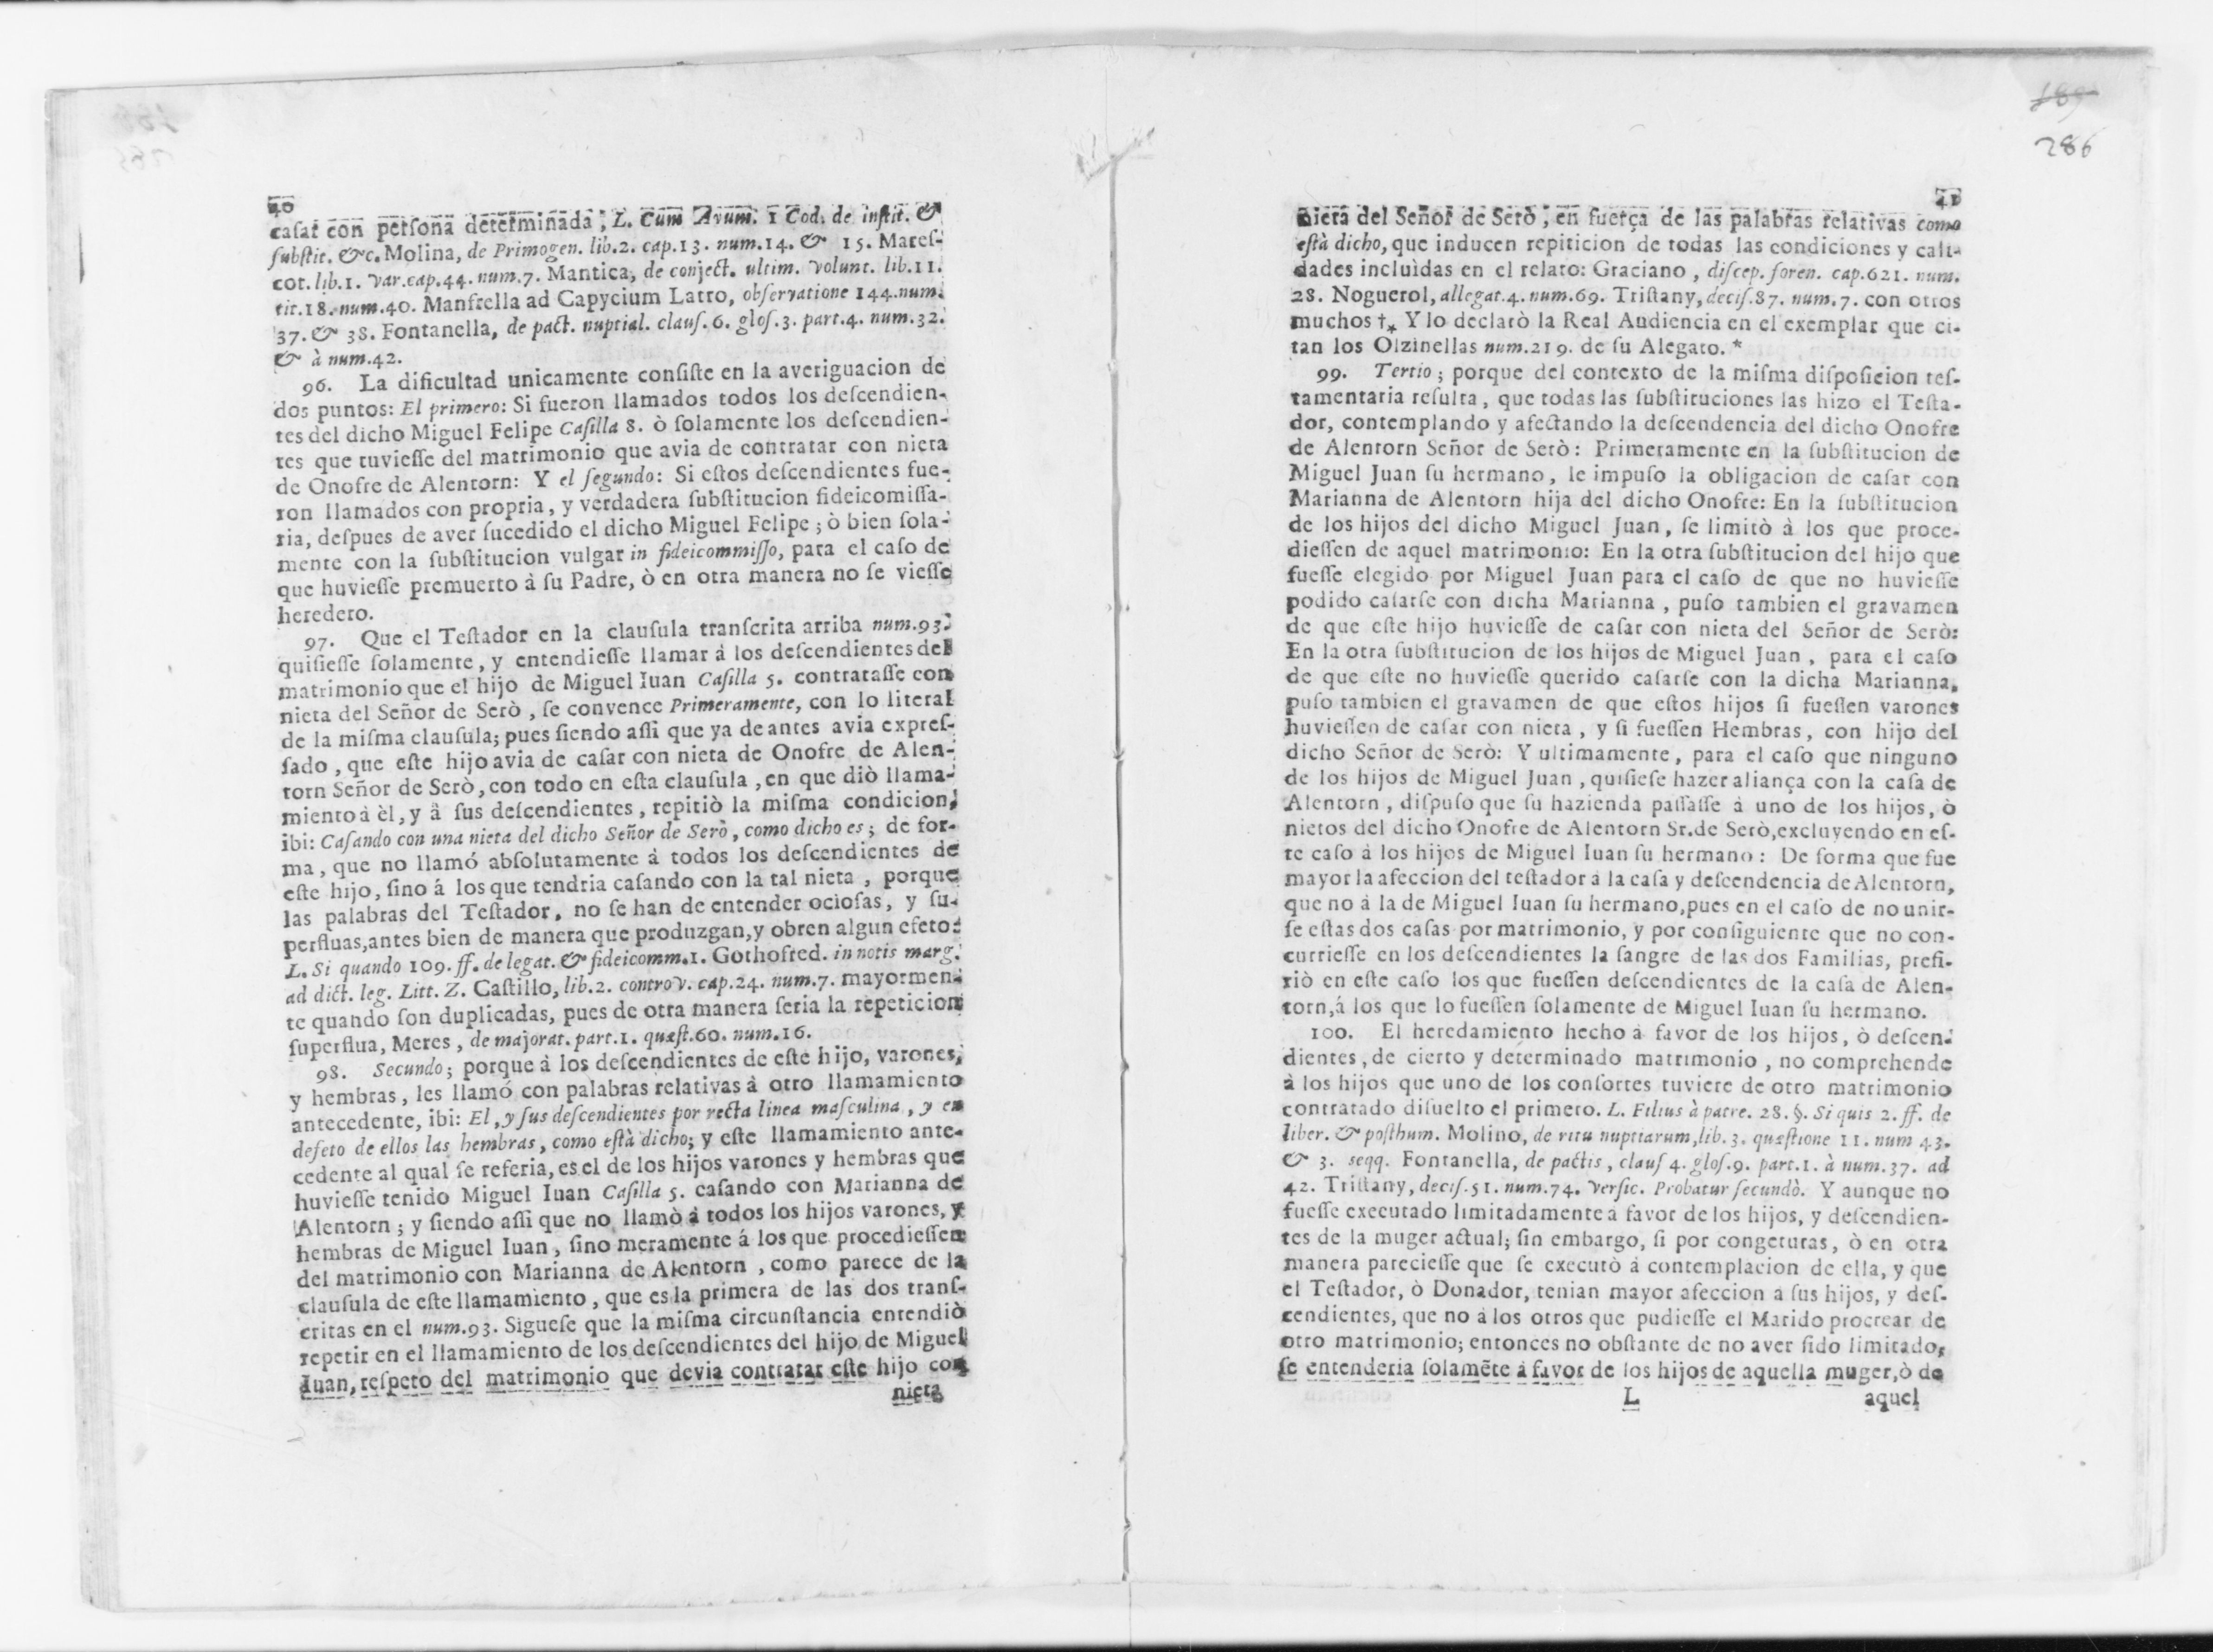 40
casar con persona determinada, L. Cum Avum. 1 Cod. de instit. &
substit. &c. Molina, de Primogen. lib.2. cap.13. num.14. & 15. Mares-
cot. lib.1. var.cap.44. num.7. Mantica, de conject. ultim. volunt. lib.11.
tit.18. num.40. Manfrella ad Capycium Latro, observatione 144.num.
37. & 38. Fontanella, de pact. nuptial. claus. 6. glos. 3. part.4. num.32.
& à num.42.
96. La dificultad unicamente consiste en la averiguacion de
dos puntos: El primero: Si fueron llamados todos los descendien-
tes del dicho Miguel Felipe Casilla 8. ò solamente los descendien-
tes que tuviesse del matrimonio que avia de contratar con nieta
de Onofre de Alentorn: Y el segundo: Si estos descendientes fue-
ron llamados con propria, y verdadera substitucion fideicomissa-
ria, despues de aver sucedido el dicho Miguel Felipe; ò bien sola-
mente con la substitucion vulgar in fideicommisso, para el caso de
que huviesse premuerto à su Padre, ò en otra manera no se viesse
heredero.
97. Que el Testador en la clausula transcrita arriba num.93.
quisiesse solamente, y entendiesse llamar á los descendientes del
matrimonio que el hijo de Miguel Iuan Casilla 5. contratasse con
nieta del Señor de Serò, se convence Primeramente, con lo literal
de la misma clausula; pues siendo assi que ya de antes avia expres-
sado, que este hijo avia de casar con nieta de Onofre de Alen-
torn Señor de Serò, con todo en esta clausula, en que diò llama-
miento à èl, y â sus descendientes, repitiò la misma condicion,
ibi: Casando con una nieta del dicho Señor de Serò, como dicho es; de for-
ma, que no llamó absolutamente à todos los descendientes de
este hijo, sino á los que tendria casando con la tal nieta, porque
las palabras del Testador, no se han de entender ociosas, y su-
perfluas, antes bien de manera que produzgan, y obren algun efeto:
L. Si quando 109. ff. de legat. & fideicomm.1. Gothofred. in notis marg.
ad dict. leg. Litt. Z. Castillo, lib.2. controv. cap.24. num.7. mayormen-
te quando son duplicadas, pues de otra manera seria la repeticion
superflua, Meres, de majorat. part.1. quæst.60. num.16.
98. Secundo; porque à los descendientes de este hijo, varones,
y hembras, les llamó con palabras relativas à otro llamamiento
antecedente, ibi: El, y sus descendientes por recta linea masculina, y en
defeto de ellos las hembras, como està dicho; y este llamamiento ante-
cedente al qual se referia, es el de los hijos varones y hembras que
huviesse tenido Miguel Iuan Casilla 5. casando con Marianna de
Alentorn; y siendo assi que no llamò à todos los hijos varones, y
hembras de Miguel Iuan, sino meramente á los que procediessen
del matrimonio con Marianna de Alentorn, como parece de la
clausula de este llamamiento, que es la primera de las dos trans-
critas en el num.93. Siguese que la misma circunstancia entendiò
repetir en el llamamiento de los descendientes del hijo de Miguel
Iuan, respeto del matrimonio que devia contratar este hijo con
nieta
189
286
41
nieta del Señor de Serò, en fuerça de las palabras relativas como
està dicho, que inducen repiticion de todas las condiciones y cali-
dades incluìdas en el relato: Graciano, discep. foren. cap.621. num.
28. Noguerol, allegat.4. num.69. Tristany, decis.87. num.7. con otros
muchos †* Y lo declarò la Real Audiencia en el exemplar que ci-
tan los Olzinellas num.219. de su Alegato. *
99. Tertio; porque del contexto de la misma disposicion tes-
tamentaria resulta, que todas las substituciones las hizo el Testa-
dor, contemplando y afectando la descendencia del dicho Onofre
de Alentorn Señor de Serò: Primeramente en la substitucion de
Miguel Juan su hermano, le impuso la obligacion de casar con
Marianna de Alentorn hija del dicho Onofre: En la substitucion
de los hijos del dicho Miguel Juan, se limitò à los que proce-
diessen de aquel matrimonio: En la otra substitucion del hijo que
fuesse elegido por Miguel Juan para el caso de que no huviesse
podido casarse con dicha Marianna, puso tambien el gravamen
de que este hijo huviesse de casar con nieta del Señor de Serò:
En la otra substitucion de los hijos de Miguel Juan, para el caso
de que este no huviesse querido casarse con la dicha Marianna,
puso tambien el gravamen de que estos hijos si fuessen varones
huviessen de casar con nieta, y si fuessen Hembras, con hijo del
dicho Señor de Serò: Y ultimamente, para el caso que ninguno
de los hijos de Miguel Juan, quisiese hazer aliança con la casa de
Alentorn, dispuso que su hazienda passasse á uno de los hijos, ò
nietos del dicho Onofre de Alentorn Sr. de Serò, excluyendo en es-
te caso á los hijos de Miguel Iuan su hermano: De forma que fue
mayor la afeccion del testador á la casa y descendencia de Alentorn,
que no á la de Miguel Iuan su hermano, pues en el caso de no unir-
se estas dos casas por matrimonio, y por consiguiente que no con-
curriesse en los descendientes la sangre de las dos Familias, prefi-
riò en este caso los que fuessen descendientes de la casa de Alen-
torn, á los que lo fuessen solamente de Miguel Iuan su hermano.
100. El heredamiento hecho à favor de los hijos, ò descen-
dientes, de cierto y determinado matrimonio, no comprehende
à los hijos que uno de los consortes tuviere de otro matrimonio
contratado disuelto el primero. L. Filius à patre. 28. §. Si quis 2. ff. de
liber. & posthum. Molino, de ritu nuptiarum, lib. 3. quæstione 11. num 43.
& 3. seqq. Fontanella, de pactis, claus 4. glos.9. part.1. à num.37. ad
42. Tristany, decis.51. num.74. versic. Probatur secundò. Y aunque no
fuesse executado limitadamente á favor de los hijos, y descendien-
tes de la muger actual; sin embargo, si por congeturas, ò en otra
manera pareciesse que se executò á contemplacion de ella, y que
el Testador, ò Donador, tenian mayor afeccion á sus hijos, y des-
cendientes, que no á los otros que pudiesse el Marido procrear de
otro matrimonio; entonces no obstante de no aver sido limitado,
se entenderia solamẽte á favor de los hijos de aquella muger, ò de
L aquel